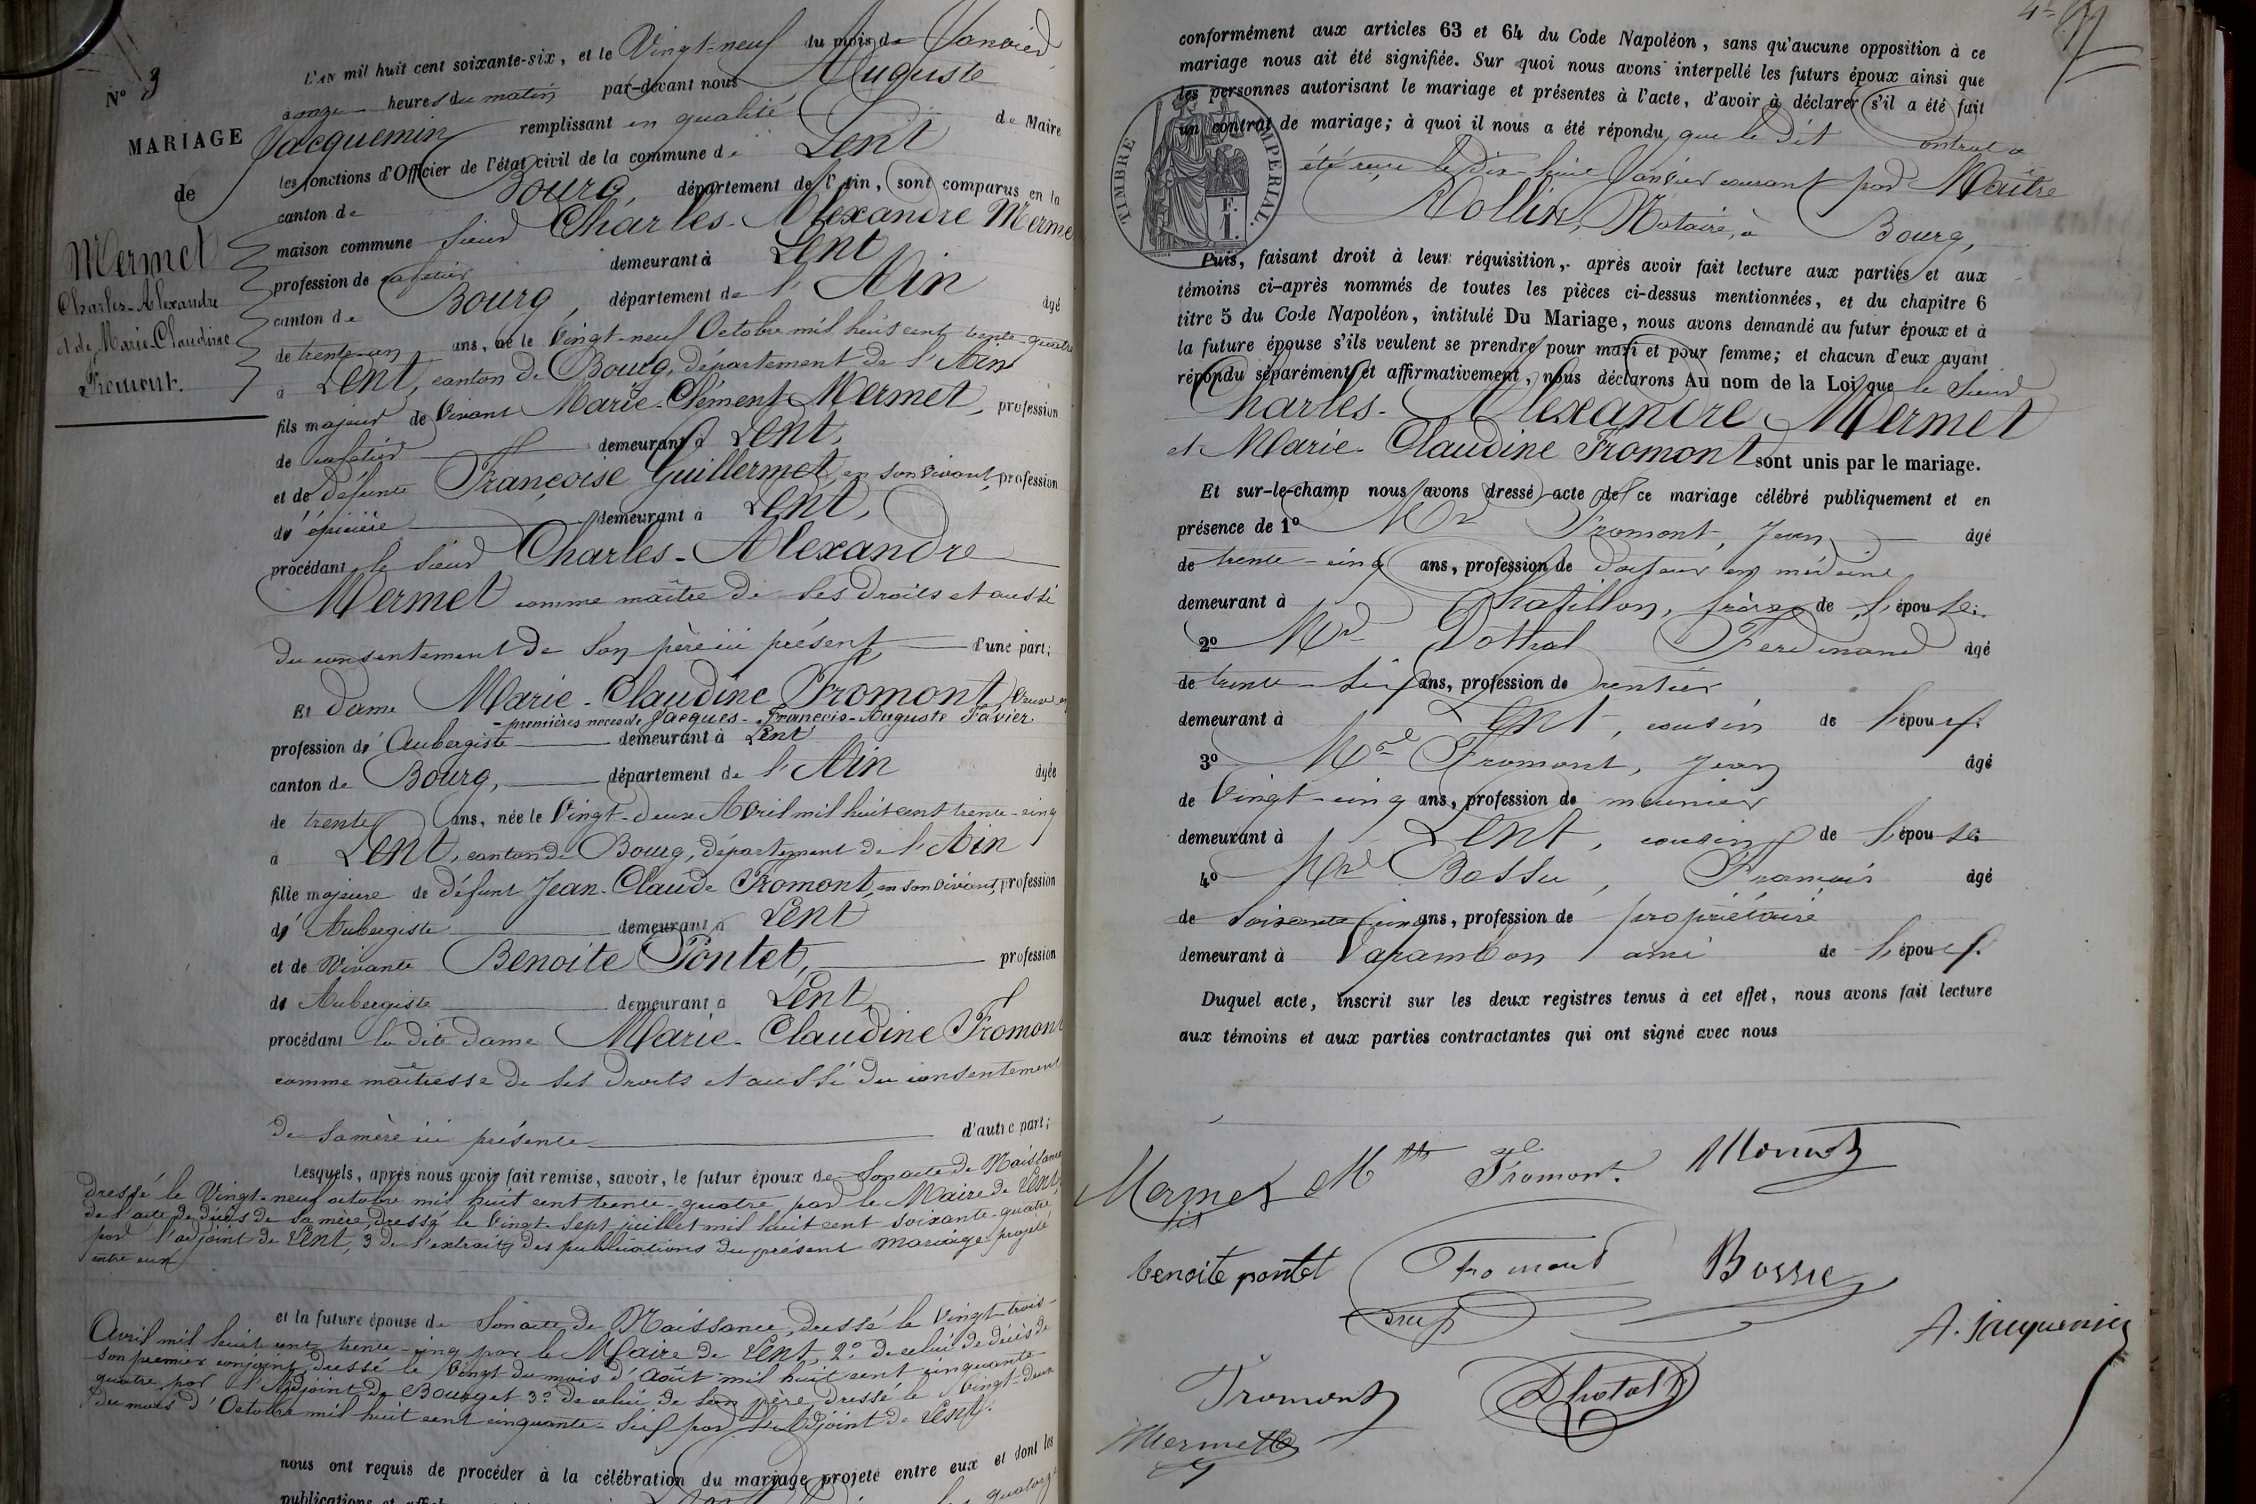 N° 9
MARIAGE
de
Mermet
Charles-Alexandre
et de Marie-Claudine
Fromont.
L'AN mil huit cent soixante-six, et le Vingt-neuf du mois de Janvier
à onze heures du matin par-devant nous Auguste
Jacquemin remplissant en qualité de Maire
les fonctions d'Officier de l'état civil de la commune de Lent
canton de Bourg, département de l'Ain, sont comparus en la
maison commune sieur Charles-Alexandre Mermet
profession de cafetier demeurant à Lent
canton de Bourg, département de l'Ain âgé
de trente-un ans, né le Vingt-neuf Octobre mil huit cent trente-quatre
à Lent, canton de Bourg, département de l'Ain
fils majeur de Vivant Marie-Clément Mermet, profession
de cafetier demeurant à Lent,
et de défunte Françoise Guillermet, en son vivant, profession
d'épicière demeurant à Lent,
procédant le sieur Charles-Alexandre
Mermet comme maître de ses droits et aussi
du consentement de son père ici présent, d'une part;
Et dame Marie-Claudine Fromont, Veuve en
premières noces de Jacques-François-Auguste Favier
profession d'Aubergiste demeurant à Lent
canton de Bourg, département de l'Ain âgée
de trente ans, née le Vingt-deux Avril mil huit cent trente-cinq
à Lent, canton de Bourg, département de l'Ain
fille majeure de défunt Jean-Claude Fromont, en son vivant, profession
d'Aubergiste demeurant à Lent
et de Vivante Benoite Pontet, profession
d'Aubergiste demeurant à Lent,
procédant la dite dame Marie-Claudine Fromont
comme maîtresse de ses droits et aussi du consentement
de sa mère ici présente d'autre part;
Lesquels, après nous avoir fait remise, savoir, le futur époux de Son acte de Naissance
dressé le Vingt-neuf octobre mil huit cent trente-quatre par le Maire de Lent,
de l'acte de décès de sa mère, dressé le Vingt-sept juillet mil huit cent soixante-quatre
par l'adjoint de Lent, 3° de l'extrait des publications du présent mariage projeté
entre eux
et la future épouse de Son acte de Naissance, dressé le Vingt-trois
Avril mil huit cent trente-cinq par le Maire de Lent, 2° de celui de décès de
son premier conjoint, dressé le Vingt du mois d'Août mil huit cent cinquante-
quatre par l'Adjoint de Bourg et 3° de celui de son père, dressé le Vingt-deux
du mois d'Octobre mil huit cent cinquante-six par l'Adjoint de Lent.
nous ont requis de procéder à la célébration du mariage projeté entre eux et dont les
publications et
conformément aux articles 63 et 64 du Code Napoléon, sans qu'aucune opposition à ce
mariage nous ait été signifiée. Sur quoi nous avons interpellé les futurs époux ainsi que
les personnes autorisant le mariage et présentes à l'acte, d'avoir à déclarer s'il a été fait
un contrat de mariage; à quoi il nous a été répondu que le dit contrat a
été reçu le dix-huit Janvier courant par Maître
Rollin, Notaire, à Bourg,
TIMBRE IMPERIAL.
F.
1.
Puis, faisant droit à leur réquisition, après avoir fait lecture aux parties et aux
témoins ci-après nommés de toutes les pièces ci-dessus mentionnées, et du chapitre 6
titre 5 du Code Napoléon, intitulé Du Mariage, nous avons demandé au futur époux et à
la future épouse s'ils veulent se prendre pour mari et pour femme; et chacun d'eux ayant
répondu séparément et affirmativement, nous déclarons Au nom de la Loi que le Sieur
Charles-Alexandre Mermet
et Marie-Claudine Fromont sont unis par le mariage.
Et sur-le-champ nous avons dressé acte de ce mariage célébré publiquement et en
présence de 1° Mr Fromont, Jean âgé
de trente-cinq ans, profession de docteur en médecine
demeurant à Chatillon, frère de l'épouse.
2° Mr Dothal Ferdinand âgé
de trente-six ans, profession de rentier
demeurant à Lent, cousin de l'époux.
3° Mr Fromont, Jean âgé
de Vingt-cinq ans, profession de meunier
demeurant à Lent, cousin de l'épouse
4° Mr Bossu, François âgé
de soixante-cinq ans, profession de propriétaire
demeurant à Varambon ami de l'époux.
Duquel acte, inscrit sur les deux registres tenus à cet effet, nous avons fait lecture
aux témoins et aux parties contractantes qui ont signé avec nous
Mermet fils Mtte Fromont.
benoite pontet Fromont Bossu
A. Jacquemin
Fromont Dhotal
Mermet